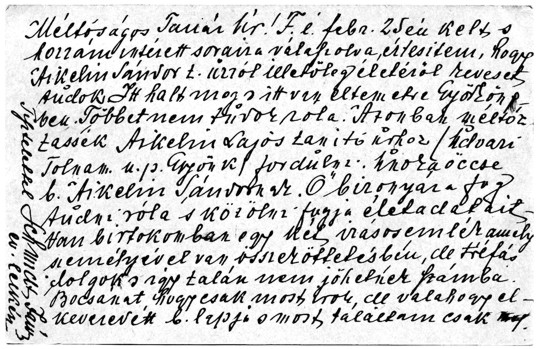 Méltóságos Tanár Úr! F. é. febr. 25én kelt s
hozzám intézett soraira válaszolva, értesitem, hogy
Aikelin Sándor t. úrról illetőleg életéről keveset
tudok. Itt halt meg s itt van eltemetve Györköny-
ben. Többet nem tudok róla. Azonban méltóz-
tassék Aikelin Lajos tanitó úrhoz /Udvari
Tolnam. u. p. Gyönk/ fordulni. Unokaöccse
b. Aikelin Sándornak. Ő bizonyára fog
tudni róla s közölni fogja életadatait.
Van birtokomban egy két irásos emlék amely
személyével van összeköttetésben, de tréfás
dolgok s igy talán nem jöhetnek számba.
Bocsánat, hogy csak most irok, de valahogy el-
keveredett b. lapja s most találtam csak meg.
Schmidt
ev. lelkész